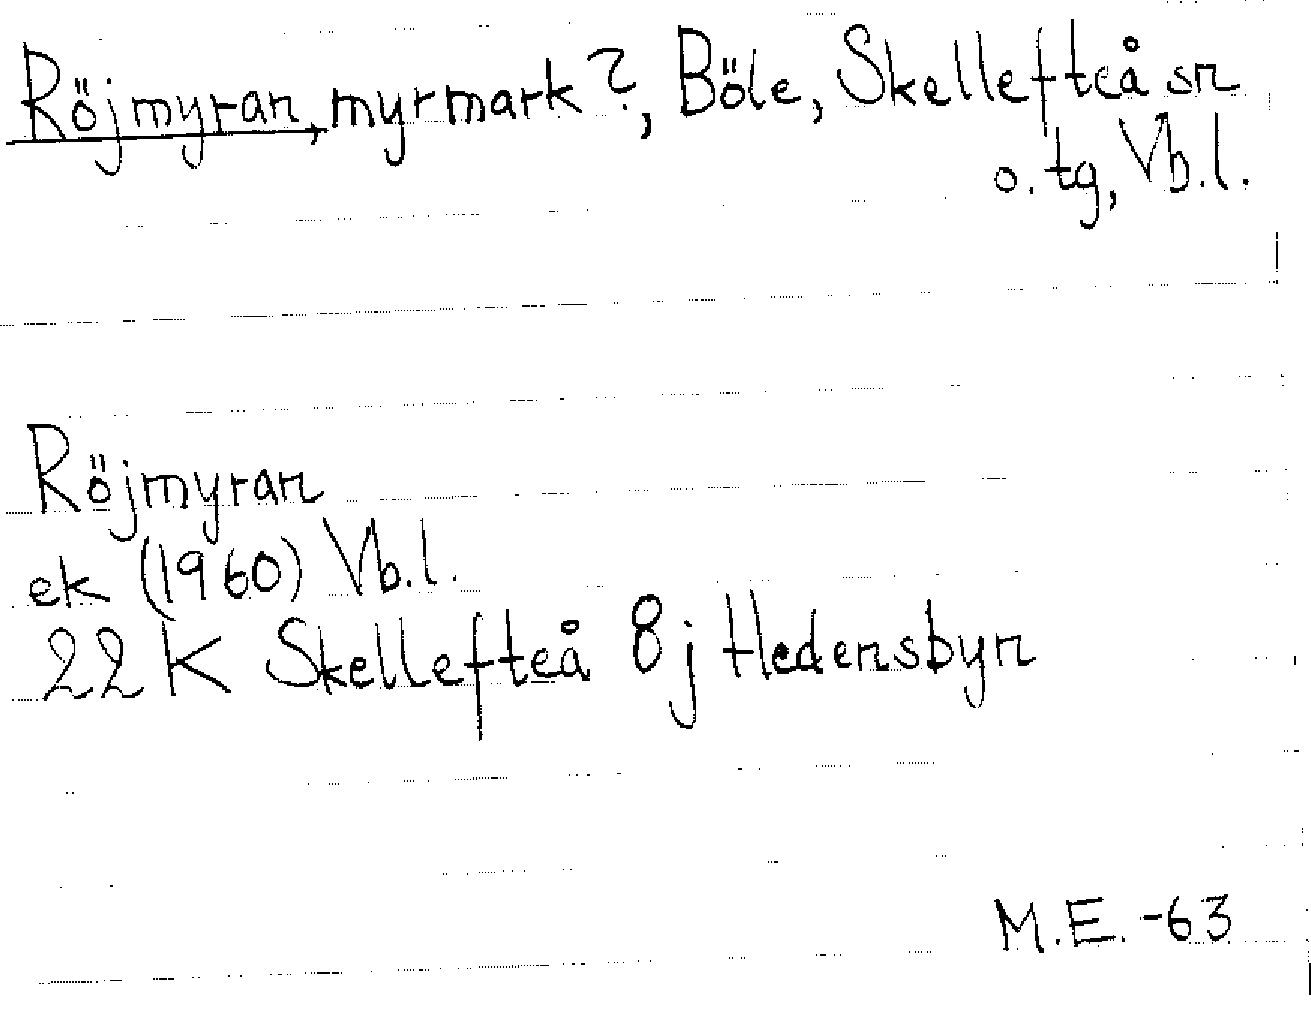 Röjmyran, myrmark?, Böle, Skellefteå sn
o. tg, Vb.l.
Röjmyran
ek (1960) Vb.l.
22 K Skellefteå 8j Hedensbyn
M.E. -63